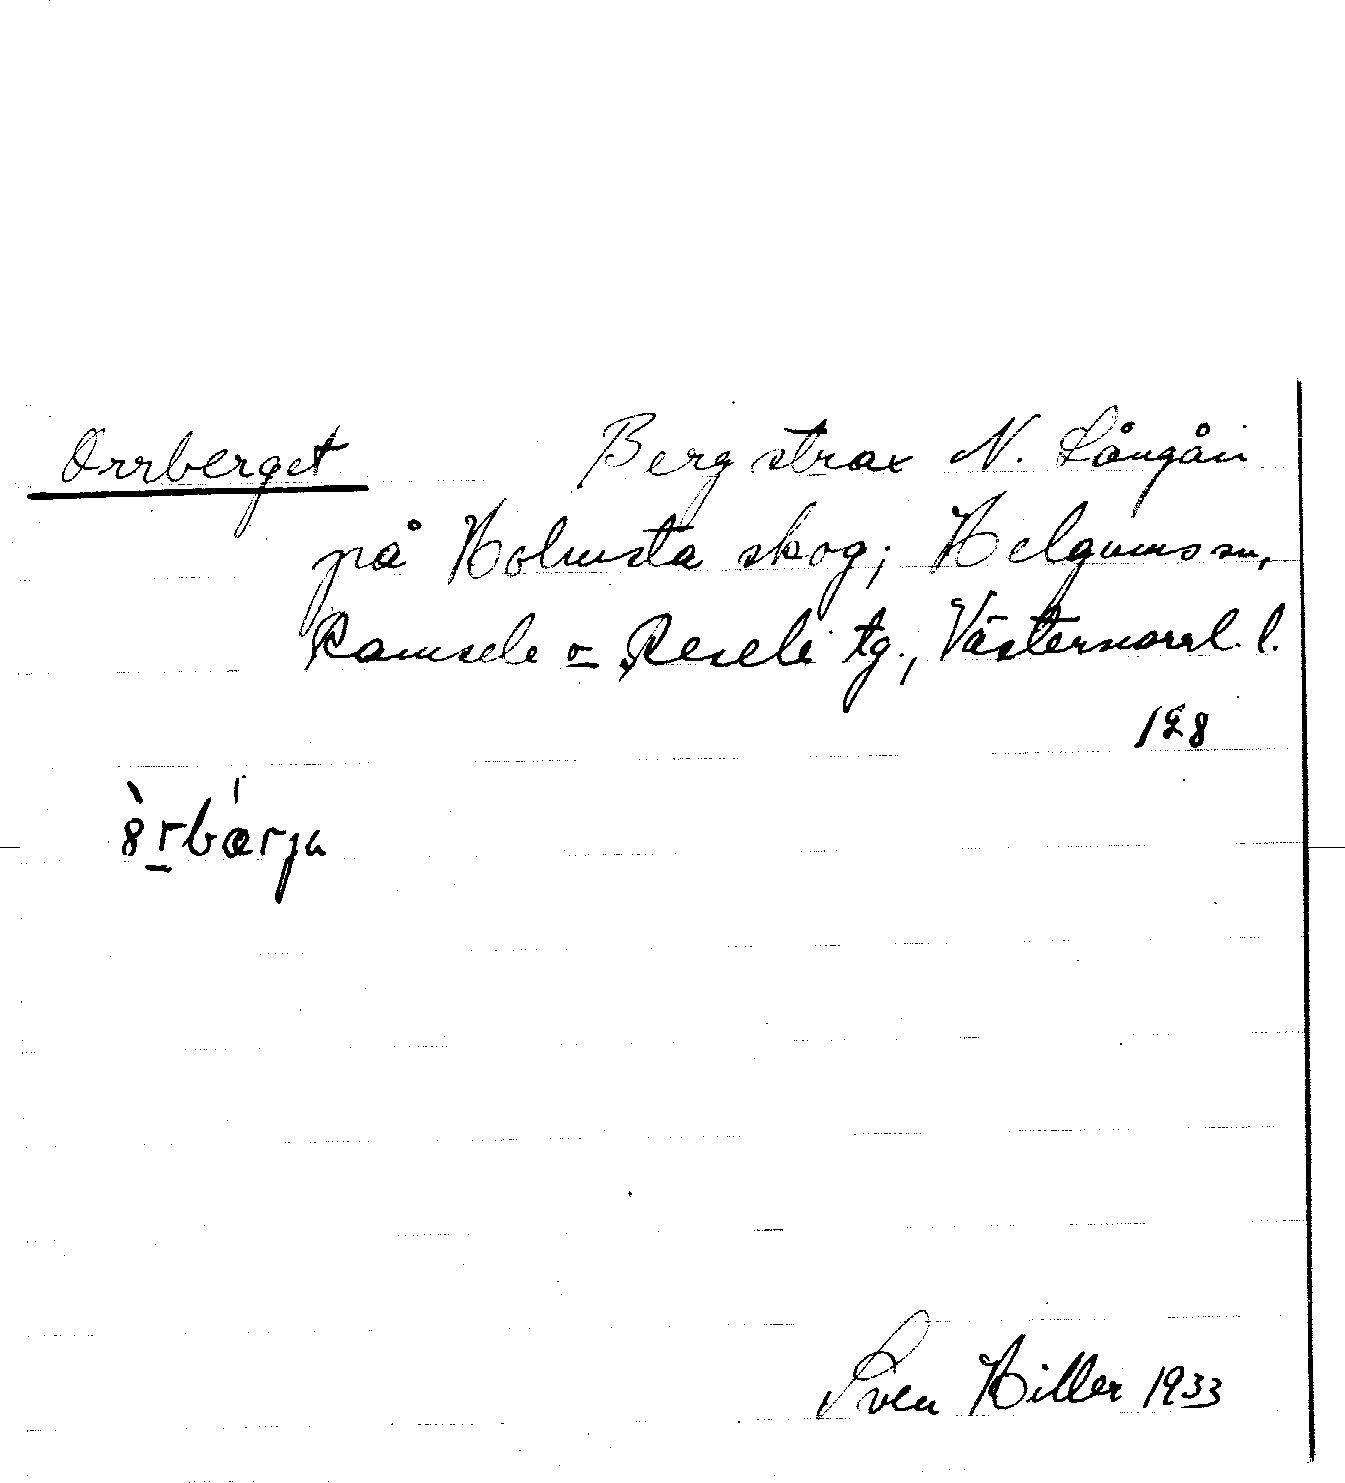 Orrberget Berg strax N. Långån
på Holmsta skog; Helgums sn,
Ramsele o Resele tg., Västernorrl. l.
128
Sven Hiller 1933